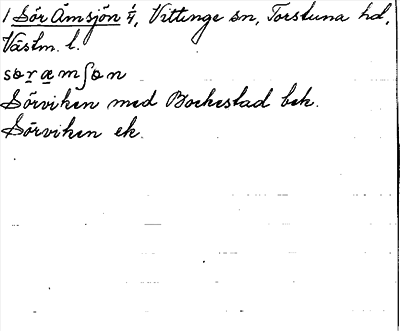 1 Sör Åmsjön 1/4, Vittinge sn, Torstuna hd,
Västm. l.
sɵr æmʃɵn
Sörviken med Bockestad bek.
Sörviken ek.